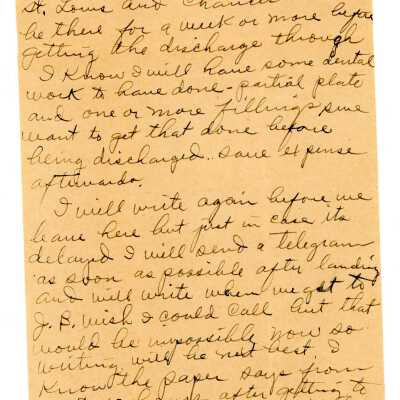 St. Louis and chances
be there for a week or more before
getting the discharge through
I know I will have some dental
work to have done - partial plate
and one or more fillings sure
want to get that done before
being discharged.. save expense
afterwards.
I will write again before we
leave here but just in case its
delayed I will send a telegram
as soon as possible after landing
and will write when we get to
J. B. Wish I could call but that
would be impossible now so
writing will be next best. I
know the paper says from
after getting to